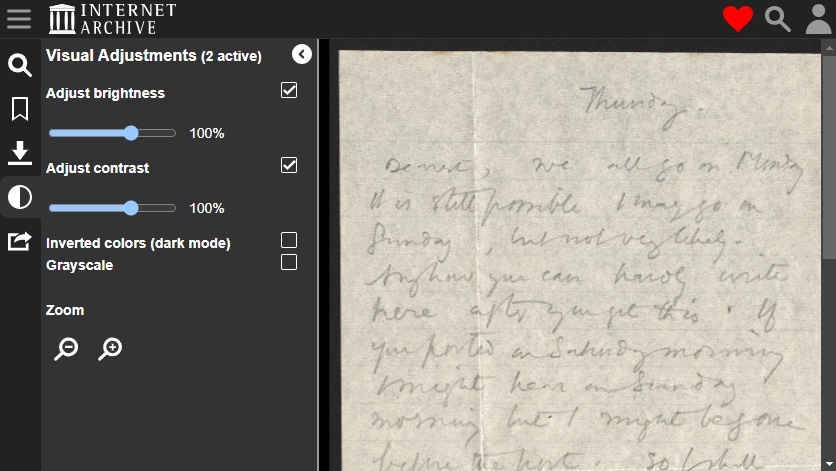 INTERNET
ARCHIVE
Visual Adjustments (2 active)
Adjust brightness
100%
Adjust contrast
100%
Inverted colors (dark mode)
Grayscale
Zoom
Thursday.
Dearest, we all go on Monday
It is still possible I may go on
Sunday, but not very likely.
Anyhow you can hardly write
here after you get this. If
you posted on Saturday morning
I might hear on Sunday
morning but I might be gone
before the post. So I shall